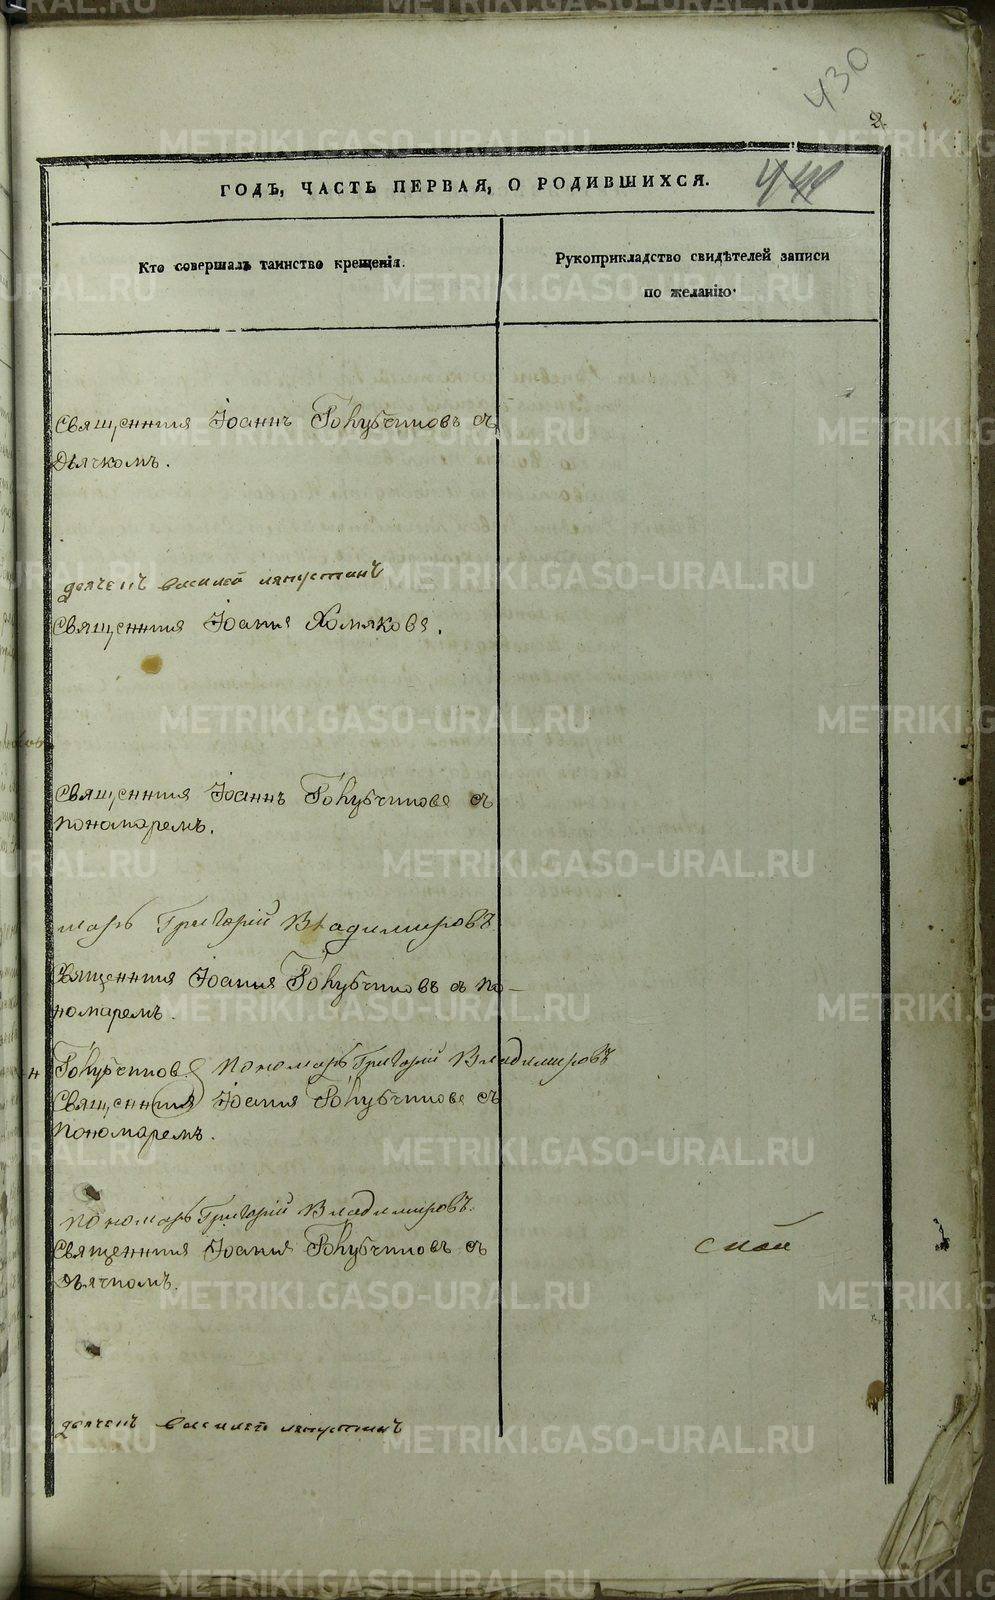 430
2.
ГОДЪ, ЧАСТЬ ПЕРВАЯ, О РОДИВШИХСЯ.
Кто совершалъ таинство крещенія.
Рукоприкладство свидѣтелей записи
по желанію.
Священникъ Іоаннъ Голубчиковъ съ
Дьячкомъ.
дьячекъ василей ляпустинъ
Священникъ Іоаннъ Хомяковъ.
Священникъ Іоаннъ Голубчиковъ съ
пономаремъ.
марь Григорій Владимировъ
Священникъ Іоаннъ Голубчиковъ съ по-
номаремъ.
Голубчиковъ пономарь Григорій Владимировъ
Священникъ Іоаннъ Голубчиковъ съ
пономаремъ.
пономарь Григорій Владимировъ.
Священникъ Іоаннъ Голубчиковъ съ
Дьячкомъ.
дьячекъ василей ляпустинъ
METRIKI.GASO-URAL.RU